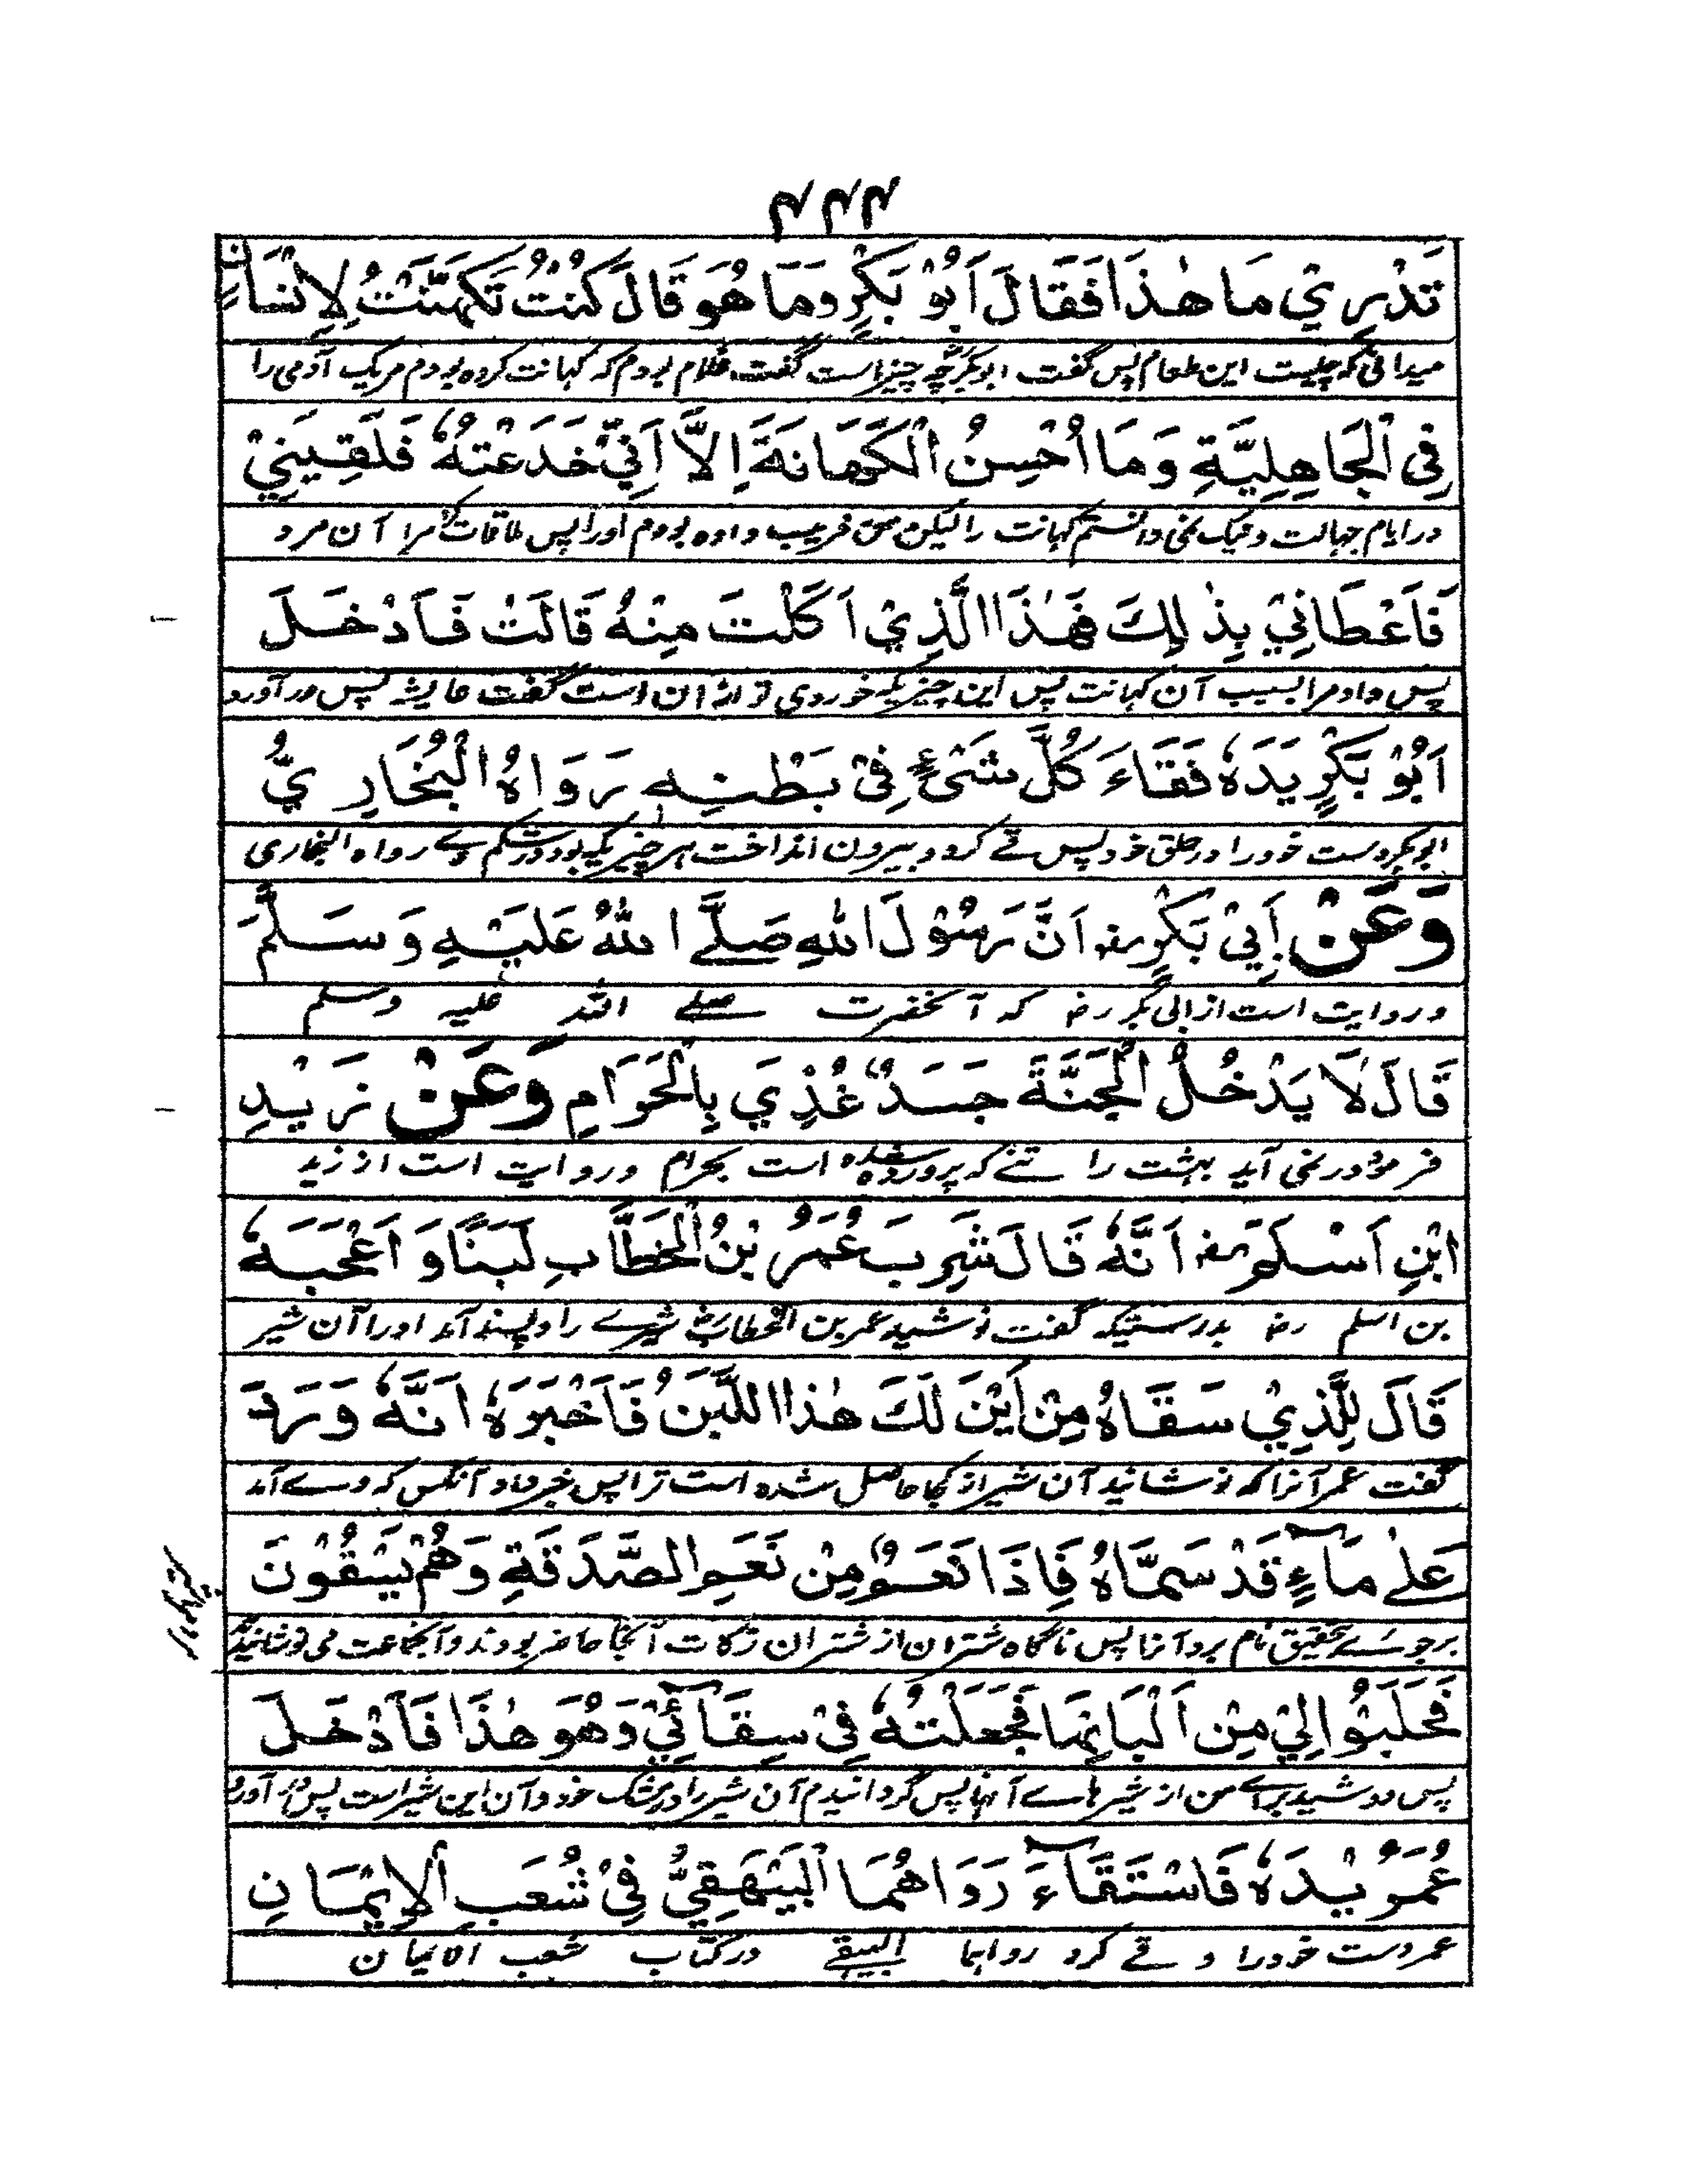 ۴۴۴
تَدْرِيْ مَا هٰذَا فَقَالَ اَبُوْ بَكْرٍ وَمَا هُوَ قَالَ كُنْتُ تَكَهَّنْتُ لِاِنْسَانٍ
میدانی کہ چیست این طعام پس گفت ابوبکر چہ چیز است گفت غلام بودم کہ کہانت کردہ بودم مریک آدمی را
فِی الْجَاهِلِيَّةِ وَمَا اُحْسِنُ الْكَهَانَةَ اِلَّا اَنِّيْ خَدَعْتُهٗ فَلَقِيَنِيْ
در ایام جہالت و نیک نمی دانستم کہانت را لیکن من فریب دادہ بودم اورا پس ملاقات کرد مرا آن مرد
فَاَعْطَانِيْ بِذٰلِكَ فَهٰذَا الَّذِيْ اَكَلْتَ مِنْهُ قَالَتْ فَاَدْخَلَ
پس داد مرا بسبب آن کہانت پس این چیزیکہ خوردی تو ازان است گفت عایشہ پس در آورد
اَبُوْ بَكْرٍ يَدَهٗ فَقَاءَ كُلَّ شَیْءٍ فِیْ بَطْنِهٖ رَوَاهُ الْبُخَارِيُّ
ابوبکر دست خود را در حلق خود پس قے کرد و بیرون انداخت ہر چیزیکہ بود در شکم وے رواہ البخاری
وَعَنْ اَبِيْ بَكْرٍ رضہ اَنَّ رَسُوْلَ اللّٰهِ صَلَّے اللّٰهُ عَلَيْهِ وَسَلَّمَ
و روایت است از ابی بکر رضہ کہ آنحضرت صلے اللہ علیہ وسلم
قَالَ لَا يَدْخُلُ الْجَنَّةَ جَسَدٌ غُذِيَ بِالْحَرَامِ وَعَنْ زَيْدِ
فرمود در نمی آید بہشت را تنے کہ پروردہ شدہ است بحرام و روایت است از زید
ابْنِ اَسْلَمَ رضہ اَنَّهٗ قَالَ شَرِبَ عُمَرُ بْنُ الْخَطَّابِ لَبَنًا وَ اَعْجَبَهٗ
بن اسلم رضہ بدرستیکہ گفت نوشید عمر بن الخطاب رضہ شیرے را و پسند آمد اورا آن شیر
قَالَ لِلَّذِيْ سَقَاهُ مِنْ اَيْنَ لَكَ هٰذَا اللَّبَنُ فَاَخْبَرَهٗ اَنَّهٗ وَرَدَ
گفت عمر آنرا کہ نوشانید آن شیر از کجا حاصل شدہ است ترا پس خبر داد آنکس کہ وے آمد
عَلٰے مَآءٍ قَدْ سَمَّاهُ فَاِذَا نَعَمٌ مِنْ نَعَمِ الصَّدَقَةِ وَهُمْ يَسْقُوْنَ
بر جوئے تحقیق نام برد آنرا پس ناگاہ شتران از شتران زکات آنجا حاضر بودند و آنجماعت می نوشانیدند
فَحَلَبُوْا لِيْ مِنْ اَلْبَانِهَا فَجَعَلْتُهٗ فِیْ سِقَآئِيْ وَهُوَ هٰذَا فَاَدْخَلَ
پس دوشید برائے من از شیر ہائے آنہا پس گردانیدم آن شیر را در مشک خود و آن این شیر است پس در آورد
عُمَرُ يَدَهٗ فَاسْتَقَآءَ رَوَاهُمَا الْبَيْهَقِيُّ فِیْ شُعَبِ الْاِيْمَانِ
عمر دست خود را و قے کرد رواہما البیہقے در کتاب شعب الایمان